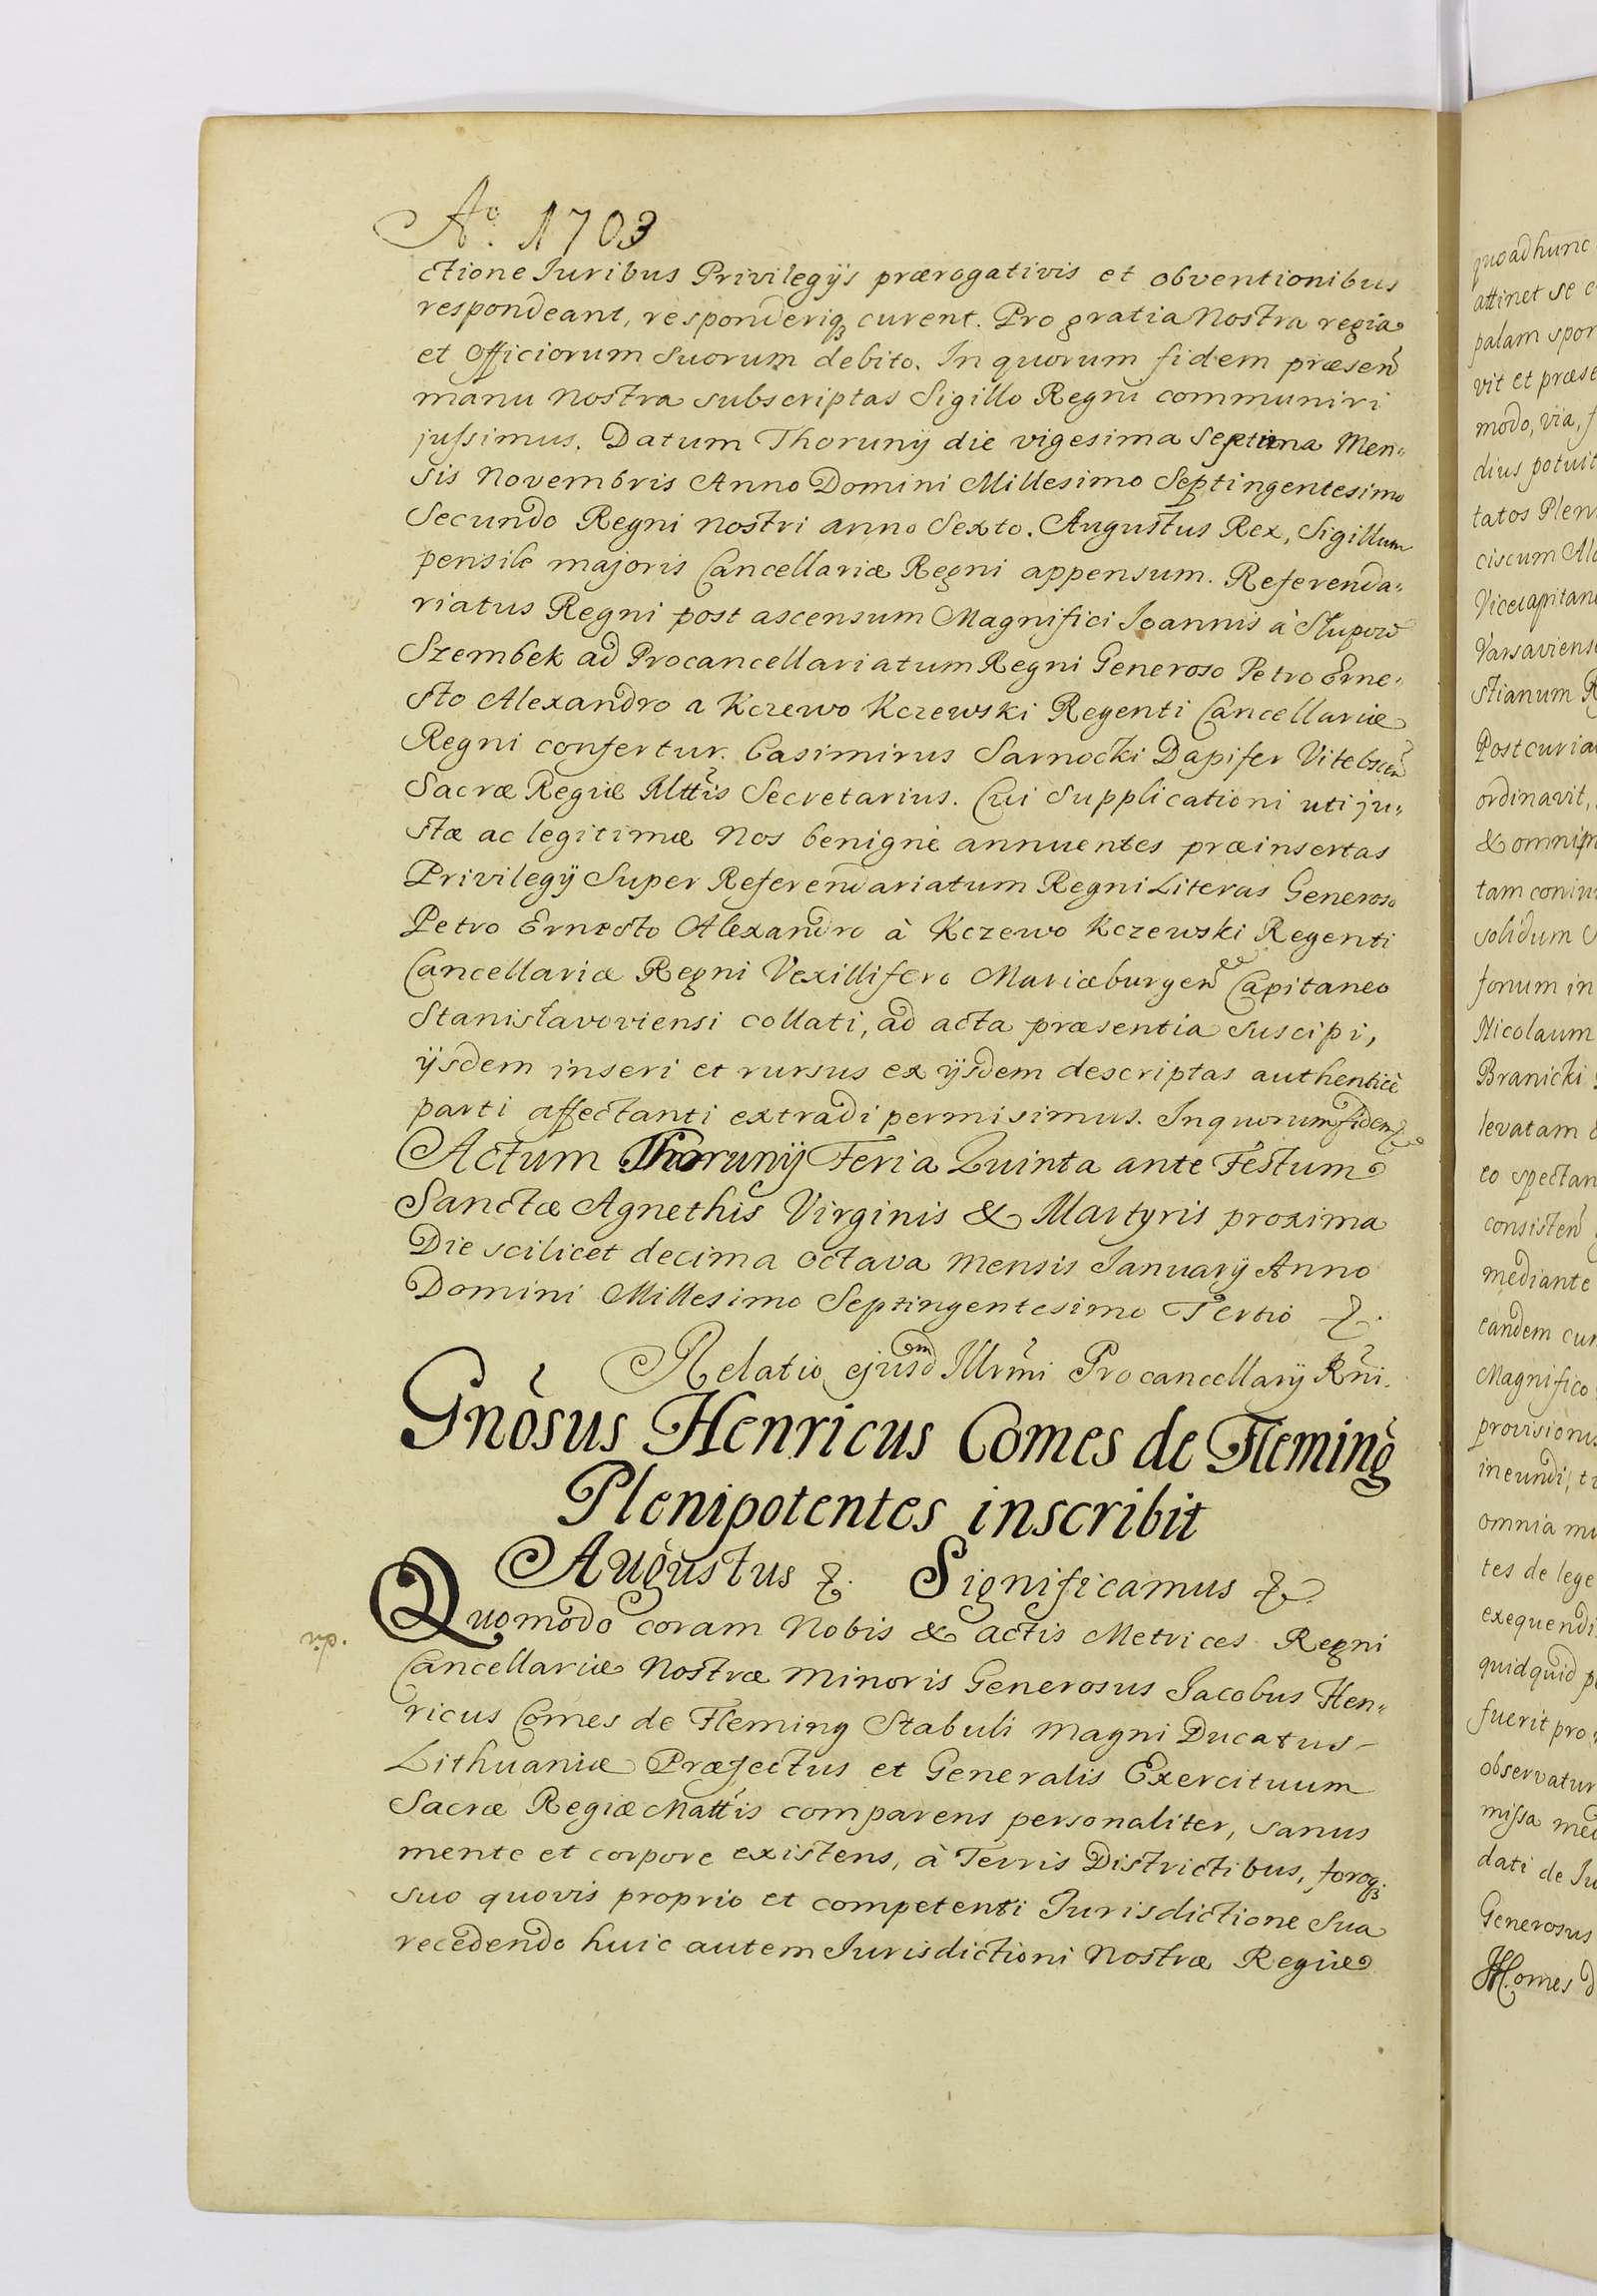 Aº. 1703
ctione Iuribus Privilegÿs prærogativis et obventionibus
respondeant, responderiq₃ curent. Pro gratia Nostra regia
et Officiorum Suorum debito. In quorum fidem præsen̄
manu Nostra subscriptas Sigillo Regni communiri
jussimus. Datum Thorunÿ die vigesima Septima Men„
sis Novembris Anno Domini Millesimo Septingentesimo
Secundo Regni nostri anno Sexto. Augustus Rex, Sigillum
pensile majoris Cancellariæ Regni appensum. Referenda„
riatus Regni post ascensum Magnifici Ioannis à Słupow
Szembek ad Procancellariatum Regni Generoso Petro Erne„
sto Alexandro a Kczewo Kczewski Regenti Cancellariæ
Regni confertur. Casimirus Sarnocki Dapifer Vitebscen̄
Sacræ Regiæ Mttis Secretarius. Cui Supplicationi uti ju„
stæ ac legitimæ Nos benignè annuentes præinsertas
Privilegÿ Super Referendariatum Regni Literas Generoso
Petro Ernesto Alexandro à Kczewo Kczewski Regenti
Cancellariæ Regni Vexillifero Mariæburgen̄ Capitaneo
Stanisłavoviensi collati, ad acta præsentia suscipi,
ÿsdem inseri et rursus ex ÿsdem descriptas authenticè
parti affectanti extradi permisimus. In quorum fidem &
Actum Thorunÿ Feria Quinta ante Festum
Sanctæ Agnethis Virginis & Martyris proxima
Die scilicet decima octava mensis Ianuarÿ Anno
Domini Millesimo Septingentesimo Tertio &.
Relatio ejusdm Illrmi Procancellarÿ Rni.
Gnosus Henricus Comes de Fleming
Plenipotentes inscribit
Augustus &. Significamus &.
Quomodo coram Nobis & actis Metrices Regni
Cancellariæ Nostræ Minoris Generosus Jacobus Hen„
ricus Comes de Fleming Stabuli Magni Ducatus
Lithuaniæ Præfectus et Generalis Exercituum
Sacræ Regiæ Mattis comparens personaliter, sanus
mente et corpore existens, à Terris Districtibus, foroq₃
suo quovis proprio et competenti Iurisdictione Sua
recedendo huic autem Iurisdictioni Nostræ Regiæ
quoad hunc
attinet se
palam spon
vit et præse
modo, via,
dius potuit
tatos Plen
ciscum
Vicecapitan
Varsaviens
stianum
Postcuria
ordinavit,
& omnim
tam coniu
solidum
sonum in
Nicolaum
Branicki
levatam
eo spectan
consisten̄
mediante
eandem cum
Magnifico
provisionis
ineundi,
omnia
tes de lege
exequendi
quidquid
fuerit pro
observatur
missa med
dati de Iu
Generosus
omes